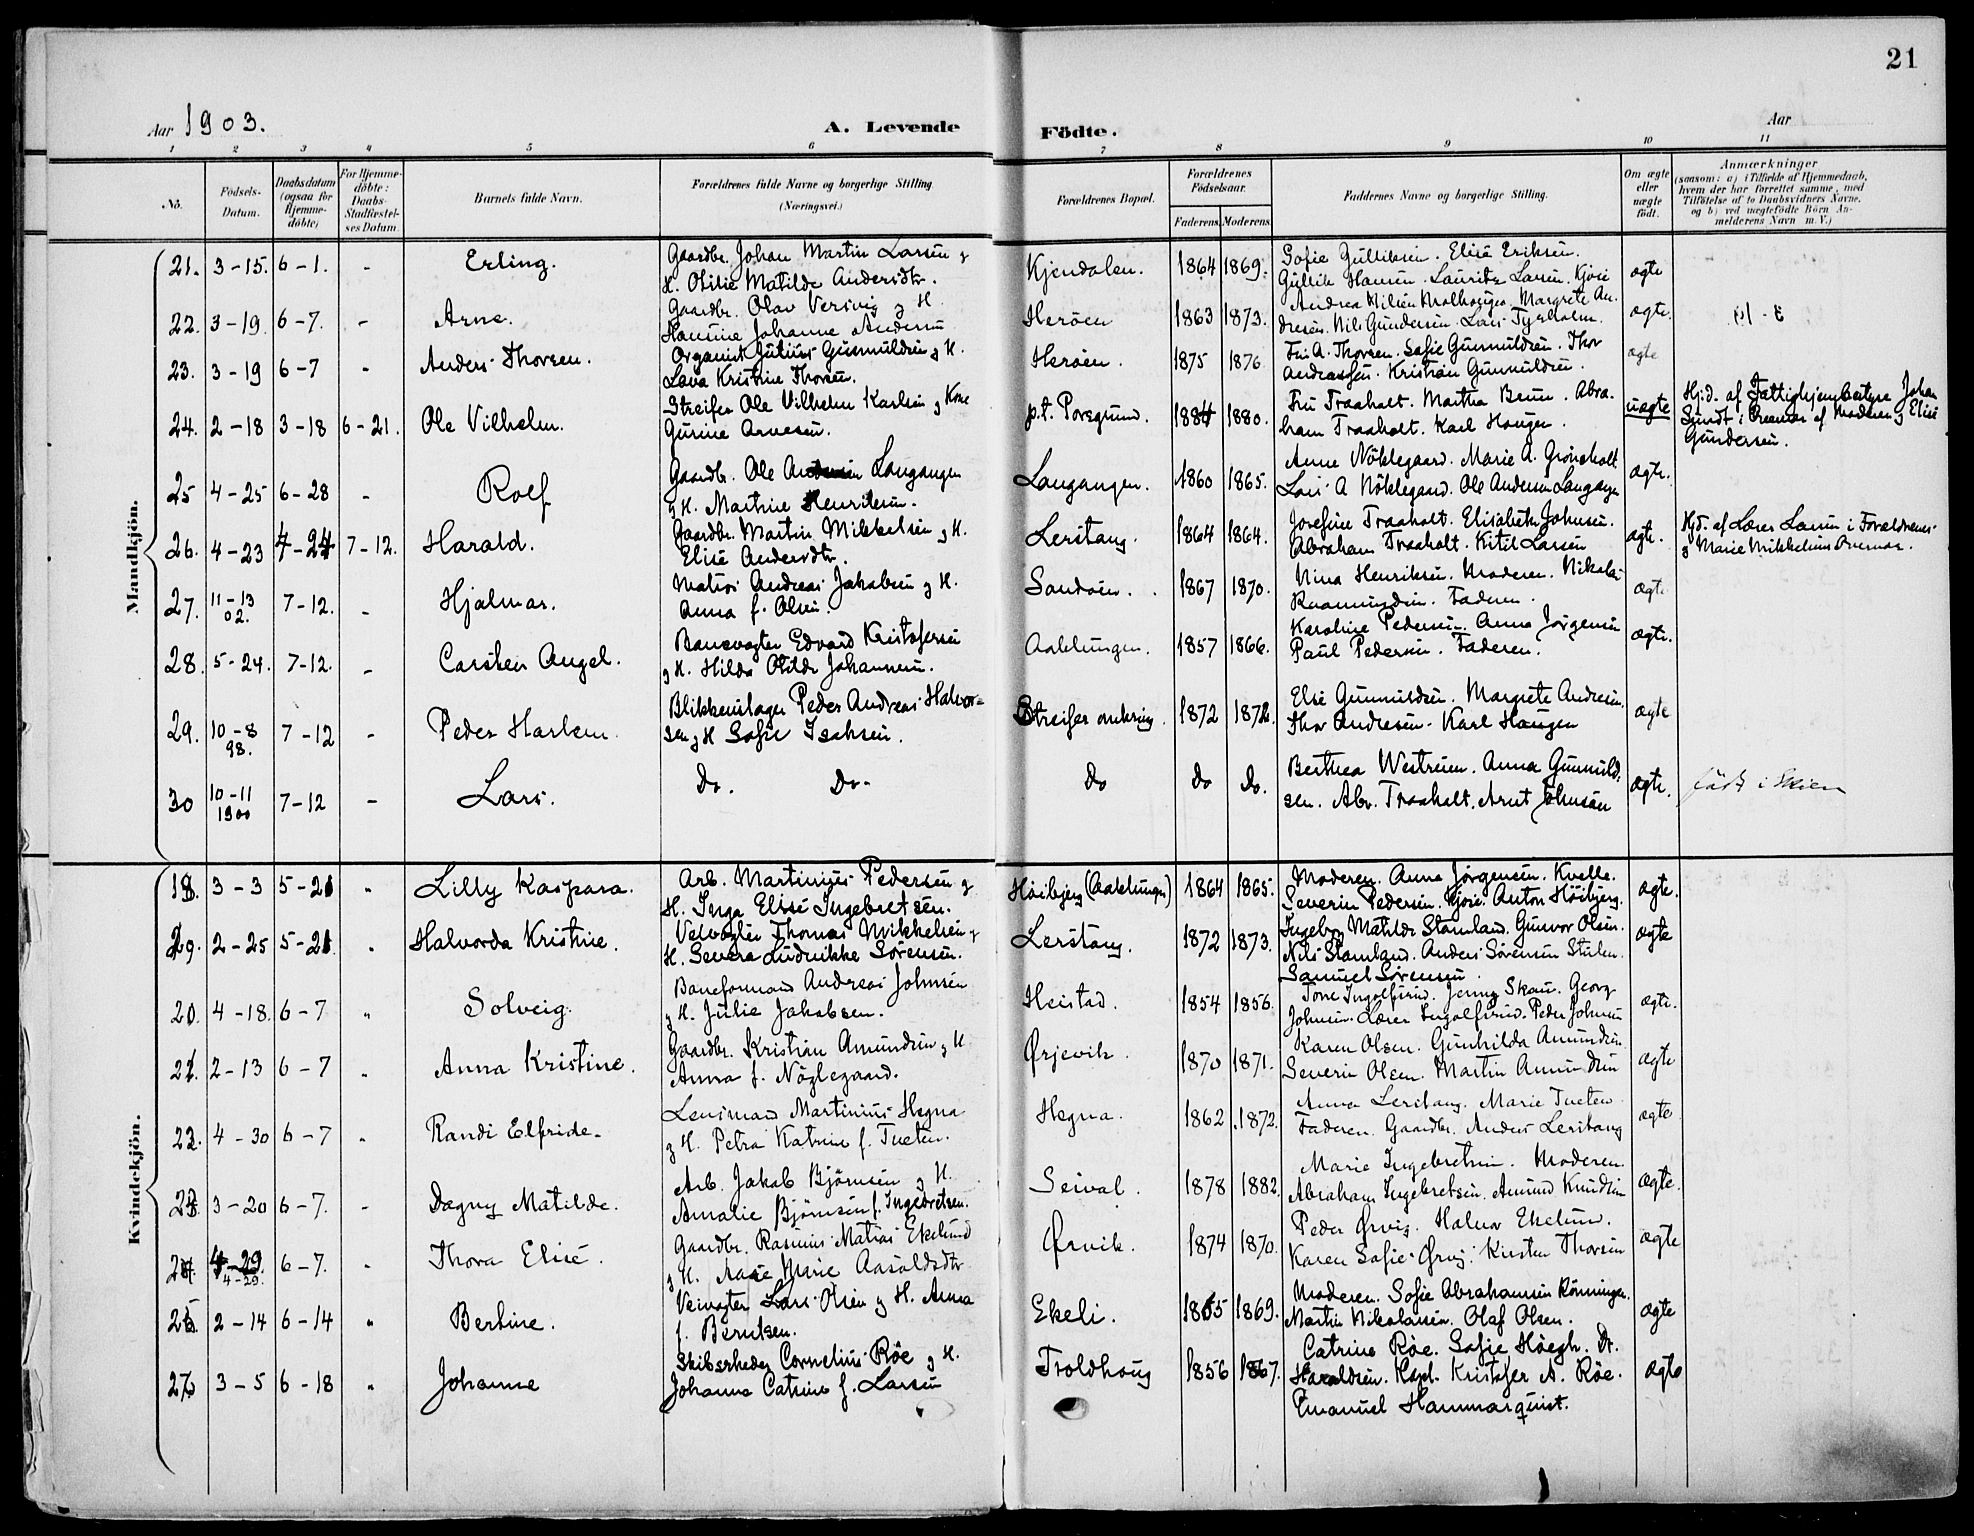 21
Aar 1903.
A. Levende Födte.
Aar
1 2 3 4 5 6 7 8 9 10 11
No.
Födsels-Datum.
Daabsdatum (ogsaa for Hjemme-döbte)
For Hjemme-döbte: Daabs-Stadfæstel-ses Datum.
Barnets fulde Navn.
Forældrenes fulde Navne og borgerlige Stilling (Næringsvei.)
Forældrenes Bopæl.
Forældrenes Födselsaar.
Faderens Moderens.
Faddernes Navne og borgerlige Stilling.
Om ægte eller uægte födt.
Anmærkninger
(saasom: a) i Tilfælde af Hjemmedaab,
hvem der har forrettet samme, med
Tilföielse af to Daabsvidners Navne.
og b) ved uægtefödte Börn An-
melderens Navn m. V.)
Mandkjön.
21. 3-15. 6-1. - Erling. Gaardbr. Johan Martin Larsen g H. Otilie Matilde Andersdtr. Kjendalen. 1864 1869. Sofie Gulliksen. Elise Eriksen. Gullik Hansen. Lauritz Larsen. Kjøse ægte
22. 3-19. 6-7. - Arne. Gaardbr. Olav Versvig g H. Hansine Johanne Andersen Herøen 1863 1873. Andrea Nilsen Margrete An-dresen. Nils Gundersen. Lars ægte.
23. 3-19 6-7 - Anders Thorsen. Organist Julius Gunnuldsen g H. Lava Kristine Thorsen. Herøen. 1875 1876 A. Thorsen. Sofie Gunnuldsen. Thor Andreassen. Kristian Gunnuldsen. ægte
24. 2-18 3-18 6-21. Ole Vilhelm. Streifer Ole Vilhelm Karlsen g Kone Gurine Arnesen. p.t. Porsgrund. 1884 1880. Fru Traaholt. Martha Bruun. Abra-ham Traaholt. Karl Haugen. uægte Hjd. af Fattighjembestyre Johan Sundt i af Moderen g Elise Gundersen.
25 4-25 6-28 - Rolf Gaardb. Ole Andersen Langangen g H. Martine Henriksen. Langangen. 1860 1865. Anne Nöklegaard. Marie A. Grönsholt Lars A Nöklegaard. Ole Andersen Langangen ægte.
26. 4-23 4-24 7-12. Harald. Gaardbr. Martin Mikkelsen g H. Elise Andersdtr. Lerstang. 1864 1864. Josefine Traaholt. Elisabeth Johnsen. Abraham Traaholt. Kitil Larsen ægte. Hjd. af Lærer Larsen i Forældrenes g Marie Mikkelsens Overvær.
27. 11-13 02. 7-12. - Hjalmar. Matros Andreas Jakobsen g H. Anna f. Olsen. Sandøen. 1867 1870. Nina Henriksen. Moderen. Nikolai Rasmussen. Faderen. ægte
28. 5-24. 7-12. - Carsten Angel. Banevogter Edvard Kristofersen g H. Hilda Otilde Johannesen. Aaklungen. 1857 1866. Karoline Pedersen. Anna Jørgensen Paul Pedersen. Faderen. ægte.
29. 10-8 98. 7-12 - Peder Harlem. Blikkenslager Peder Andreas Halvor-sen g H Sofie Isaksen. Streifer omkring. 1872 1872. Else Gunnuldsen. Margrete Andresen, Thor Andresen. Karl Haugen ægte
30 10-11 1900 7-12 - Lars. Do. Do. Do Do Do. Berthea Westreien. Anna Gunnuld-sen. Abr. Traaholt. Arnt Johnsen ægte. födt i Skien
Kvindekjön.
18. 3-3 5-21 " Lilly Kaspara. Arb. Martinius Pedersen g H. Inga Elise Ingebretsen. Höibjerg (Aaklungen) 1864 1865. Moderen. Anna Jørgensen. Kvelle. Severin Pedersen. Kjose. Anton Höibjerg. ægte.
19. 2-25 5-21 " Halvorda Kristine. Veivogter Thomas Mikkelsen g H. Severa Ludvikke Sørensen. Lerstang. 1872 1873. Ingeborg Matilde Stamland. Gunvor Olsen. Nils Stamland. Anders Sørensen Stulen. Samuel Sørensen. ægte
20. 4-18. 6-7 " Solveig. Baneformand Andreas Johnsen g H. Julie Jakobsen. Heistad. 1854 1856. Tone Ingolfsrud. Jenny Skau. Georg Johnsen. Lærer Ingolfsrud. Peder Johnsen ægte.
21. 2-13 6-7 " Anna Kristine. Gaardbr. Kristian Amundsen g H Anna f. Nøglegaard. Ørjevik. 1870 1871. Karen Olsen. Gunhilda Amundsen Severin Olsen. Martin Amundsen ægte
22. 4-30 6-7 " Randi Elfride. Lensmand Martinius Hegna g H. Petra Katrine f. Tueten. Hegna. 1862 1872. Anna Lerstang. Marie Tueten Faderen. Gaardbr. Anders Lerstang ægte
23. 3-20 6-7. - Dagny Matilde. Arb. Jakob Bjørnsen g H. Amalie Bjørnsen f. Ingebretsen. Seival. 1878 1882. Marie Ingebretsen. Moderen. Abraham Ingebretsen. Amund Knudsen ægte.
24. 4-29. 6-7. - Thora Elise. Gaardbr. Rasmus Matias Ekelund g H. Marie Aasoldsdtr Ørvik. 1874 1870. Peder Ørvig. Halvor Ekelund. Karen Sofie Ørvig. Kirsten Thorsen ægte
25. 2-14 6-14 " Bertine. Veivogter Lars Olsen g H. Anna f. Berntsen. Ekeli. 1865 1869. Moderen. Sofie Abrahamsen Rönningen. Martin Nikolaisen. Olaf Olsen. ægte
26 3-5 6-18 " Johanne Skibsreder Cornelius Röe g H. Johanna Catrine f. Larsen Troldhoug 1856 1867. Catrine Röe. Sofie Höegh. Dr. Haraldsen. Kapt. Kristofer A. Röe. Emanuel Hammarquist. ægte